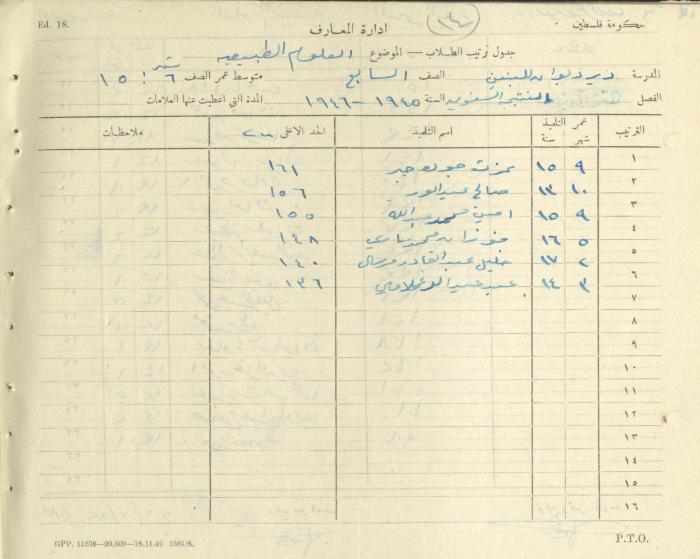 Ed. 18.
(١٤)
حكومة فلسطين
ادارة المعارف
جدول ترتيب الطلاب — الموضوع العلوم الطبيعيه
المدرسة دير ديوان للبنين الصف السابع متوسط عمر الصف ٦ شهر ١٥
الفصل السنة ١٩٤٥ – ١٩٤٦ المدة التي اعطيت عنها العلامات
الترتيب عمر التلميذ شهر سنة اسم التلميذ الحد الاعلى ٢٠٠ ملاحظات
١ ٩ ١٥ عزت جوده جبر ١٦١
٢ ١٠ ١٣ صالح ١٥٦
٣ ٩ ١٥ امين محمد عبدالله ١٥٥
٤ ٥ ١٦ فوزان محمد ١٤٨
٥ ٢ ١٧ خليل عبد القادر ١٤٠
٦ ٣ ١٤ عبد ١٣٦
٧
٨
٩
١٠
١١
١٢
١٣
١٤
١٥
١٦
GPP. 11578—20,000—18.11.40 1681/S.
P.T.O.